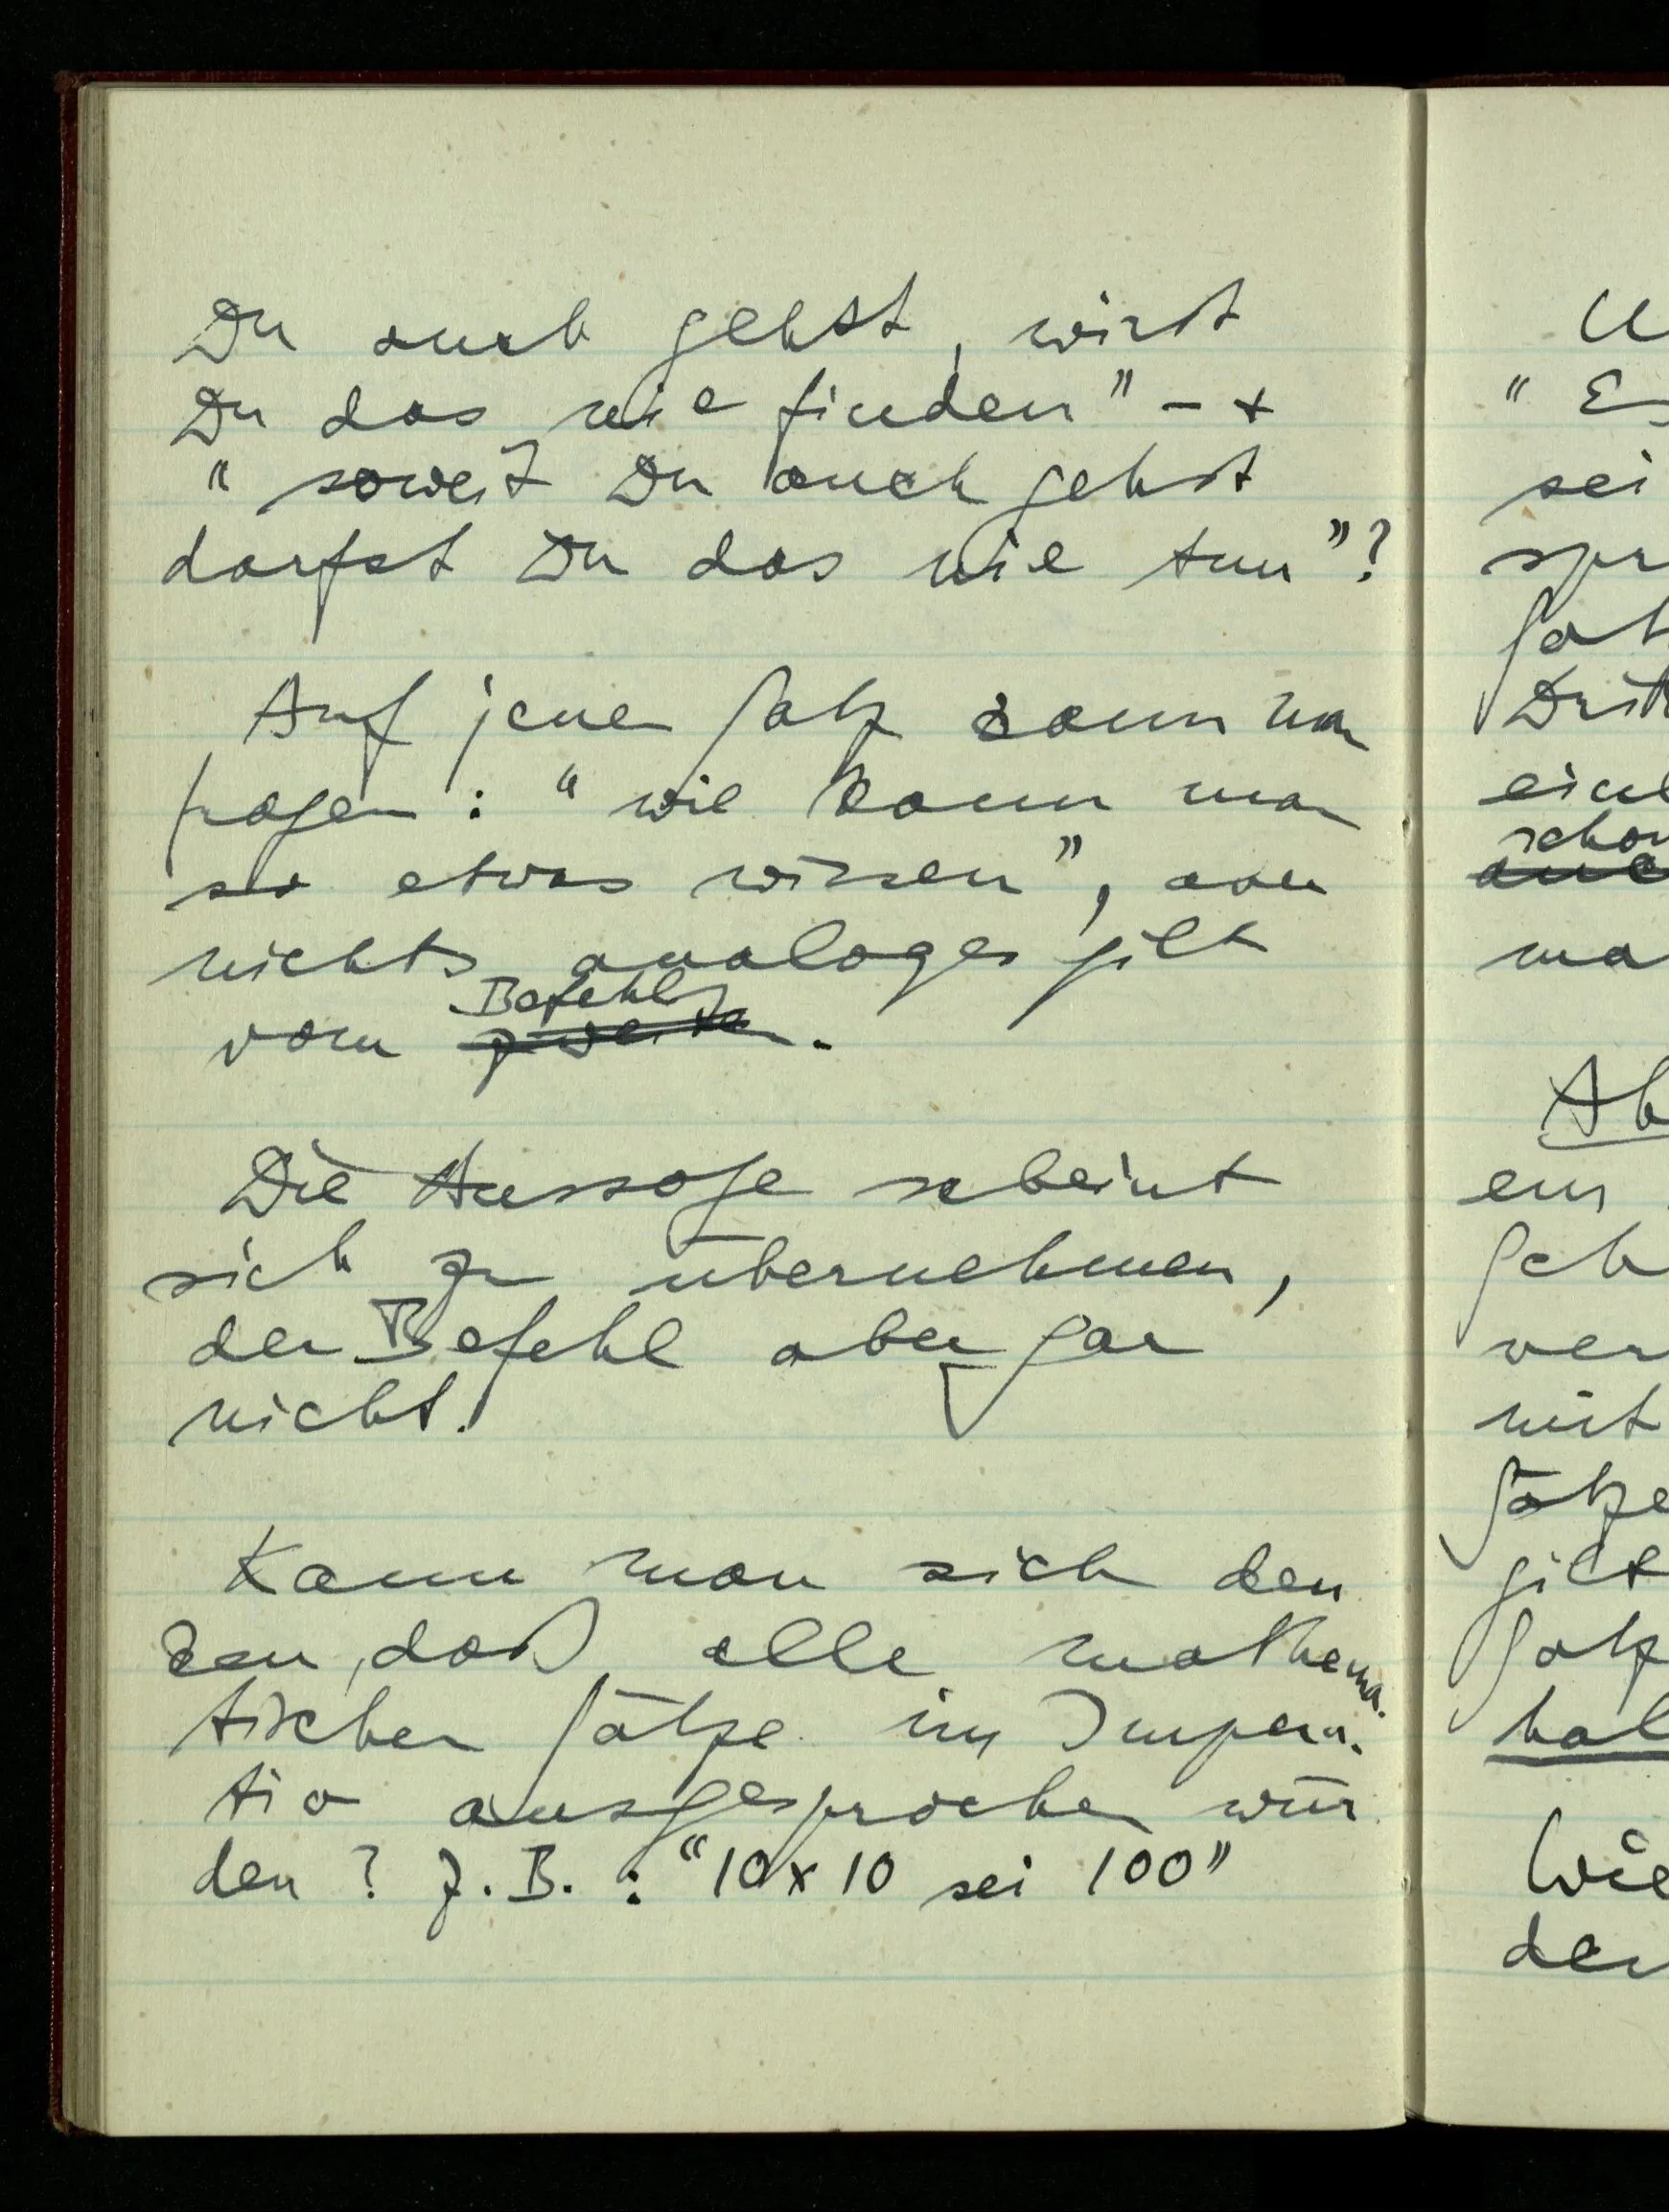 Du auch gehst, wirst
Du das nie finden" – +
" soweit Du auch gehst
darfst Du das nie tun"?
Auf jenen Satz kann man
fragen: "wie kann man
so etwas wissen", aber
nichts analoges gilt
Befehl
vom zweiten.
Die Aussage scheint
sich zu übernehmen,
der Befehl aber gar
nicht.
Kann man sich den
ken, daß alle mathema-
tischen Sätze im Impera-
tiv ausgesprochen wür
den? Z.B.: "10x10 sei 100"
U
" Es
sei
spr
Sat
Drit
eine
schon
ma
Ab
ein
Geh
ver
mit
Sätze
gilt
Satz
hal
Wie
den